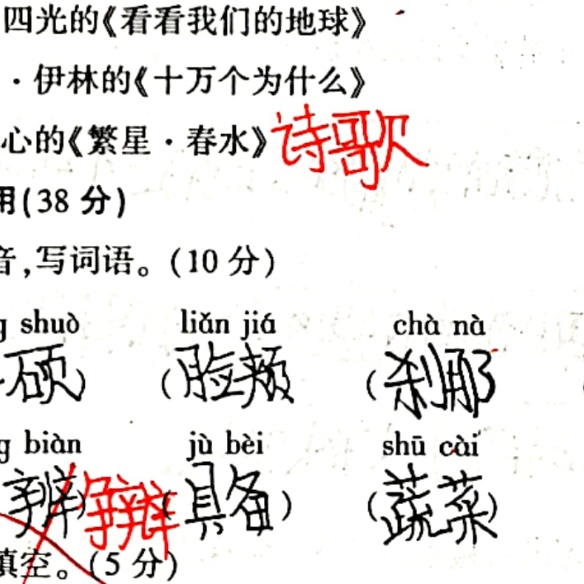 四光的《看看我们的地球》
·伊林的《十万个为什么》
心的《繁星·春水》诗歌
用(38 分)
音,写词语。(10 分)
g shuò liǎn jiá chà nà
硕) (脸颊 (刹那
g biàn jù bèi shū cài
争辩 (具备) (蔬菜)
填空。(5 分)